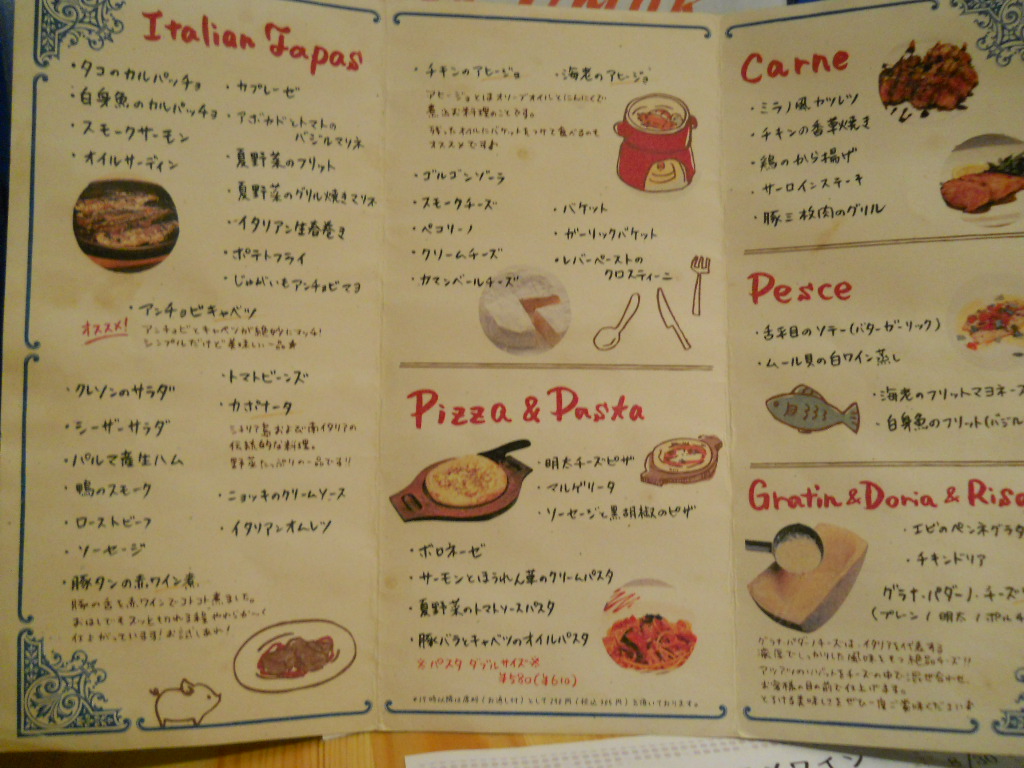 Italian Tapas
・タコのカルパッチョ
・白身魚のカルパッチョ
・スモークサーモン
・オイルサーディン
・カプレーゼ
・アボカドとトマトの
バジルマリネ
・夏野菜のフリット
・夏野菜のグリル焼きマリネ
・イタリアン生春巻き
・ポテトフライ
・じゃがいもアンチョビマヨ
・アンチョビキャベツ
オススメ!
アンチョビとキャベツが絶妙にマッチ!
シンプルだけど美味しい一品★
・クレソンのサラダ
・シーザーサラダ
・パルマ産生ハム
・鴨のスモーク
・ローストビーフ
・ソーセージ
・トマトビーンズ
・カポナータ
シチリア島および南イタリアの
伝統的な料理。
野菜たっぷりの一品です!!
・ニョッキのクリームソース
・イタリアンオムレツ
・豚タンの赤ワイン煮
豚の舌を赤ワインでコトコト煮ました。
おはしでもスッと切れる程やわらか〜く
仕上がっています!お試しあれ!
・チキンのアヒージョ
・海老のアヒージョ
アヒージョとはオリーブオイルとにんにくで
煮込お料理のことです。
残ったオイルにバケットをつけて食べるのも
オススメです♪
・ゴルゴンゾーラ
・スモークチーズ
・ペコリーノ
・クリームチーズ
・カマンベールチーズ
・バケット
・ガーリックバケット
・レバーペーストの
クロスティーニ
Pizza & Pasta
・明太チーズピザ
・マルゲリータ
・ソーセージと黒胡椒のピザ
・ボロネーゼ
・サーモンとほうれん草のクリームパスタ
・夏野菜のトマトソースパスタ
・豚バラとキャベツのオイルパスタ
※パスタ ダブルサイズ※
¥580(¥610)
Carne
・ミラノ風カツレツ
・チキンの香草焼き
・鶏のから揚げ
・サーロインステーキ
・豚三枚肉のグリル
Pesce
・舌平目のソテー(バターガーリック)
・ムール貝の白ワイン蒸し
・海老のフリットマヨネーズ
・白身魚のフリット(バジル
Gratin & Doria & Riso
・エビのペンネグラタ
・チキンドリア
グラナ・パダーノ・チーズ
(プレーン / 明太 / ポルチ
グラナ・パダーノチーズは、イタリアを代表する
深度でしっかりした風味をもつ絶品チーズ!!
アツアツのリゾットをチーズの中で混ぜ合わせ、
お客様の目の前で仕上げます。
とろける美味しさをぜひ一度ご賞味ください♪